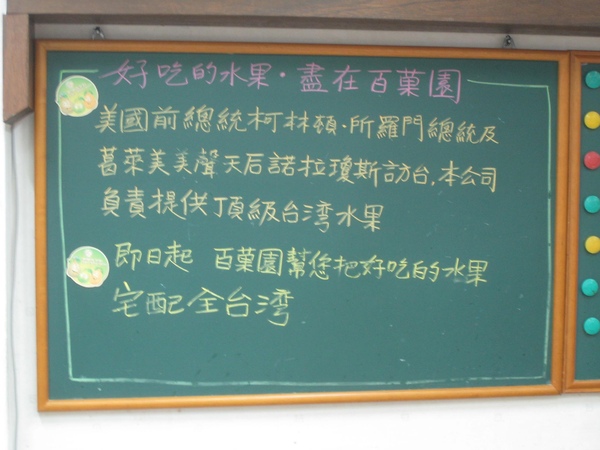 好吃的水果·盡在百菓園
美國前總統柯林頓、所羅門總統及
葛萊美美聲天后諾拉瓊斯訪台,本公司
負責提供頂級台湾水果
即日起 百菓園幫您把好吃的水果
宅配全台灣